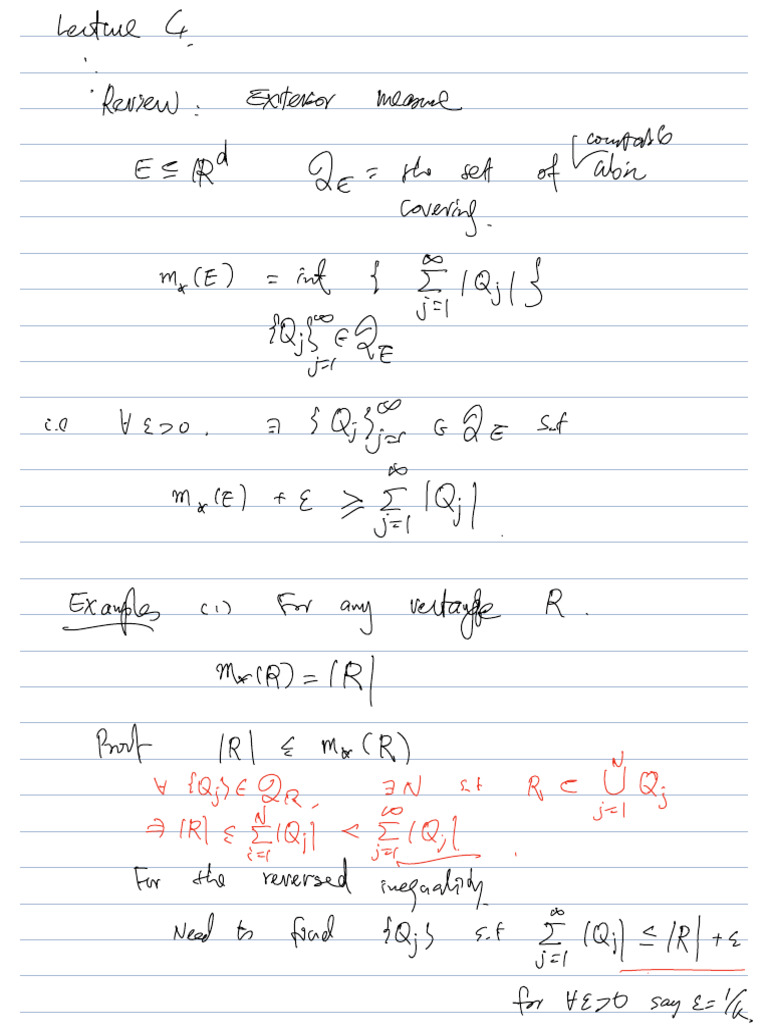 Lecture 4.
Review: Exterior measure
E ⊆ ℝ^d   𝒬_E = the set of countable
covering.
m_*(E) = inf { ∑_{j=1}^∞ |Q_j| }
{Q_j}_{j=1}^∞ ∈ 𝒬_E
i.e ∀ ε>0. ∃ {Q_j}_{j=1}^∞ ∈ 𝒬_E s.t
m_*(E) + ε ≥ ∑_{j=1}^∞ |Q_j|.
Examples (1) For any rectangle R.
m_*(R) = |R|
Proof |R| ≤ m_*(R)
∀ {Q_j} ∈ 𝒬_R, ∃ N s.t R ⊂ ⋃_{j=1}^N Q_j
⇒ |R| ≤ ∑_{i=1}^N |Q_j| < ∑_{j=1}^∞ |Q_j|.
For the reversed inequality.
Need to find {Q_j} s.t ∑_{j=1}^∞ |Q_j| ≤ |R| + ε
for ∀ε>0 say ε = 1/k.